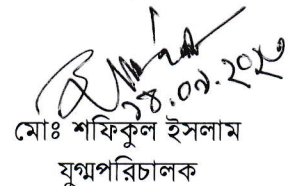 ১৪.০৭.২০২৫
মোঃ শফিকুল ইসলাম
যুগ্মপরিচালক